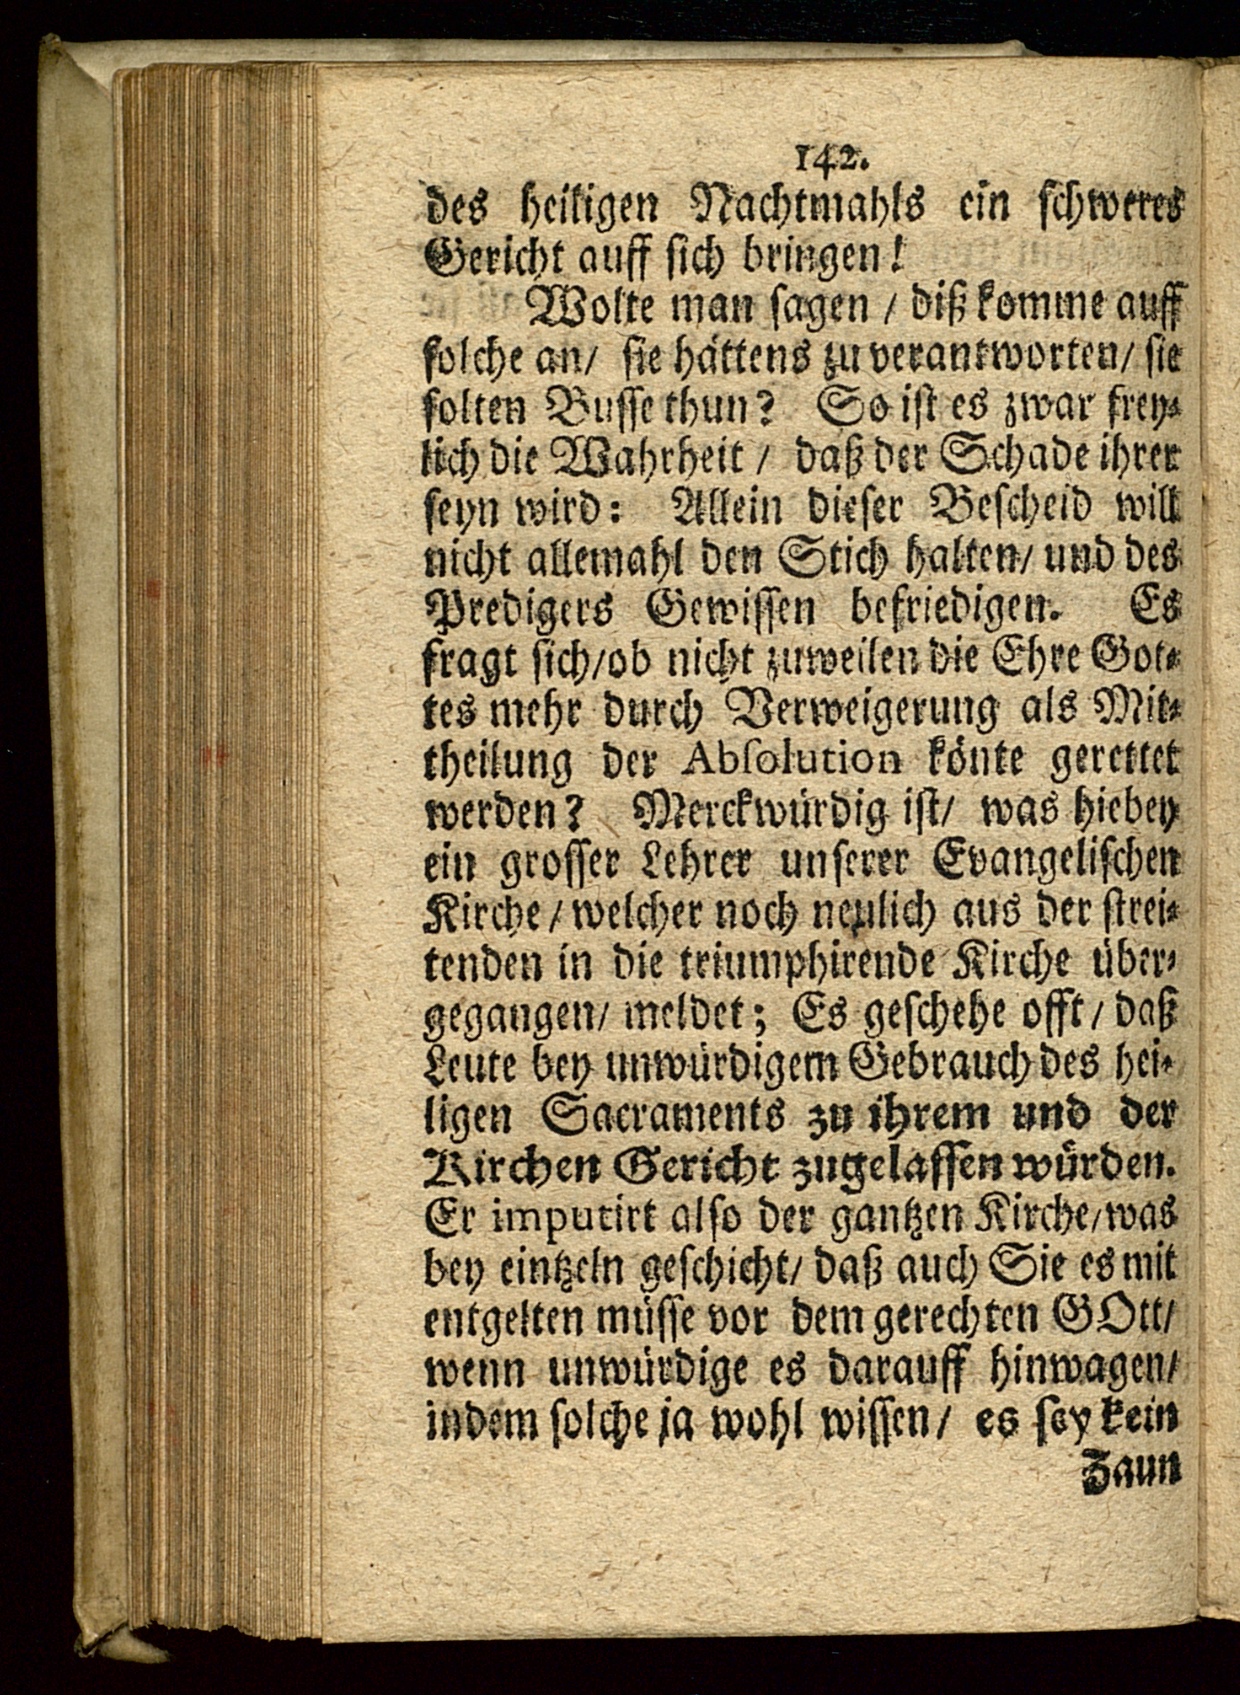 142.
des heiligen Nachtmahls ein schweres
Gericht auff sich bringen!
Wolte man sagen / diß komme auff
solche an/ sie hättens zu verantworten/ sie
solten Busse thun? So ist es zwar frey-
lich die Wahrheit / daß der Schade ihrer
seyn wird: Allein dieser Bescheid will
nicht allemahl den Stich halten/ und des
Predigers Gewissen befriedigen. Es
fragt sich/ob nicht zuweilen die Ehre Got-
tes mehr durch Verweigerung als Mit-
theilung der Absolution könte gerettet
werden? Merckwürdig ist/ was hiebey
ein grosser Lehrer unserer Evangelischen
Kirche / welcher noch neulich aus der strei-
tenden in die triumphirende Kirche über-
gegangen/ meldet; Es geschehe offt / daß
Leute bey unwürdigem Gebrauch des hei-
ligen Sacraments zu ihrem und der
Kirchen Gericht zugelassen würden.
Er imputirt also der gantzen Kirche/was
bey eintzeln geschicht/ daß auch Sie es mit
entgelten müsse vor dem gerechten GOtt/
wenn unwürdige es darauff hinwagen/
indem solche ja wohl wissen/ es sey kein
Zaun